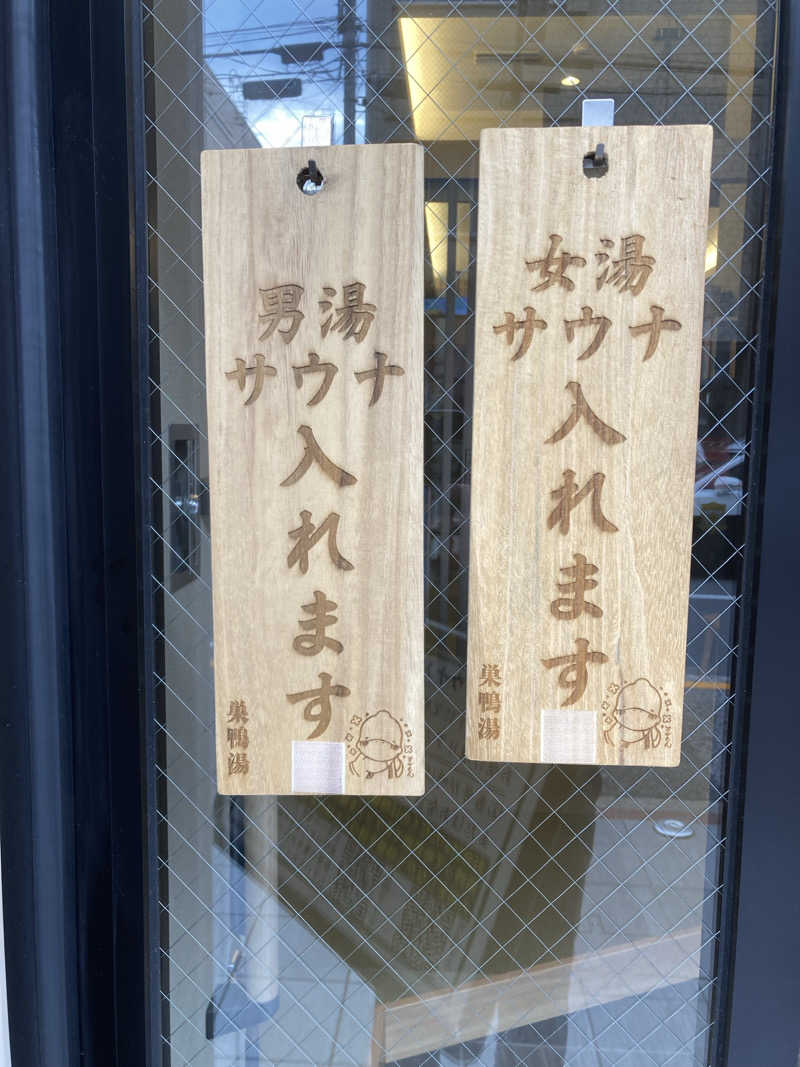 男湯
サウナ
入れます
巣鴨湯
女湯
サウナ
入れます
巣鴨湯